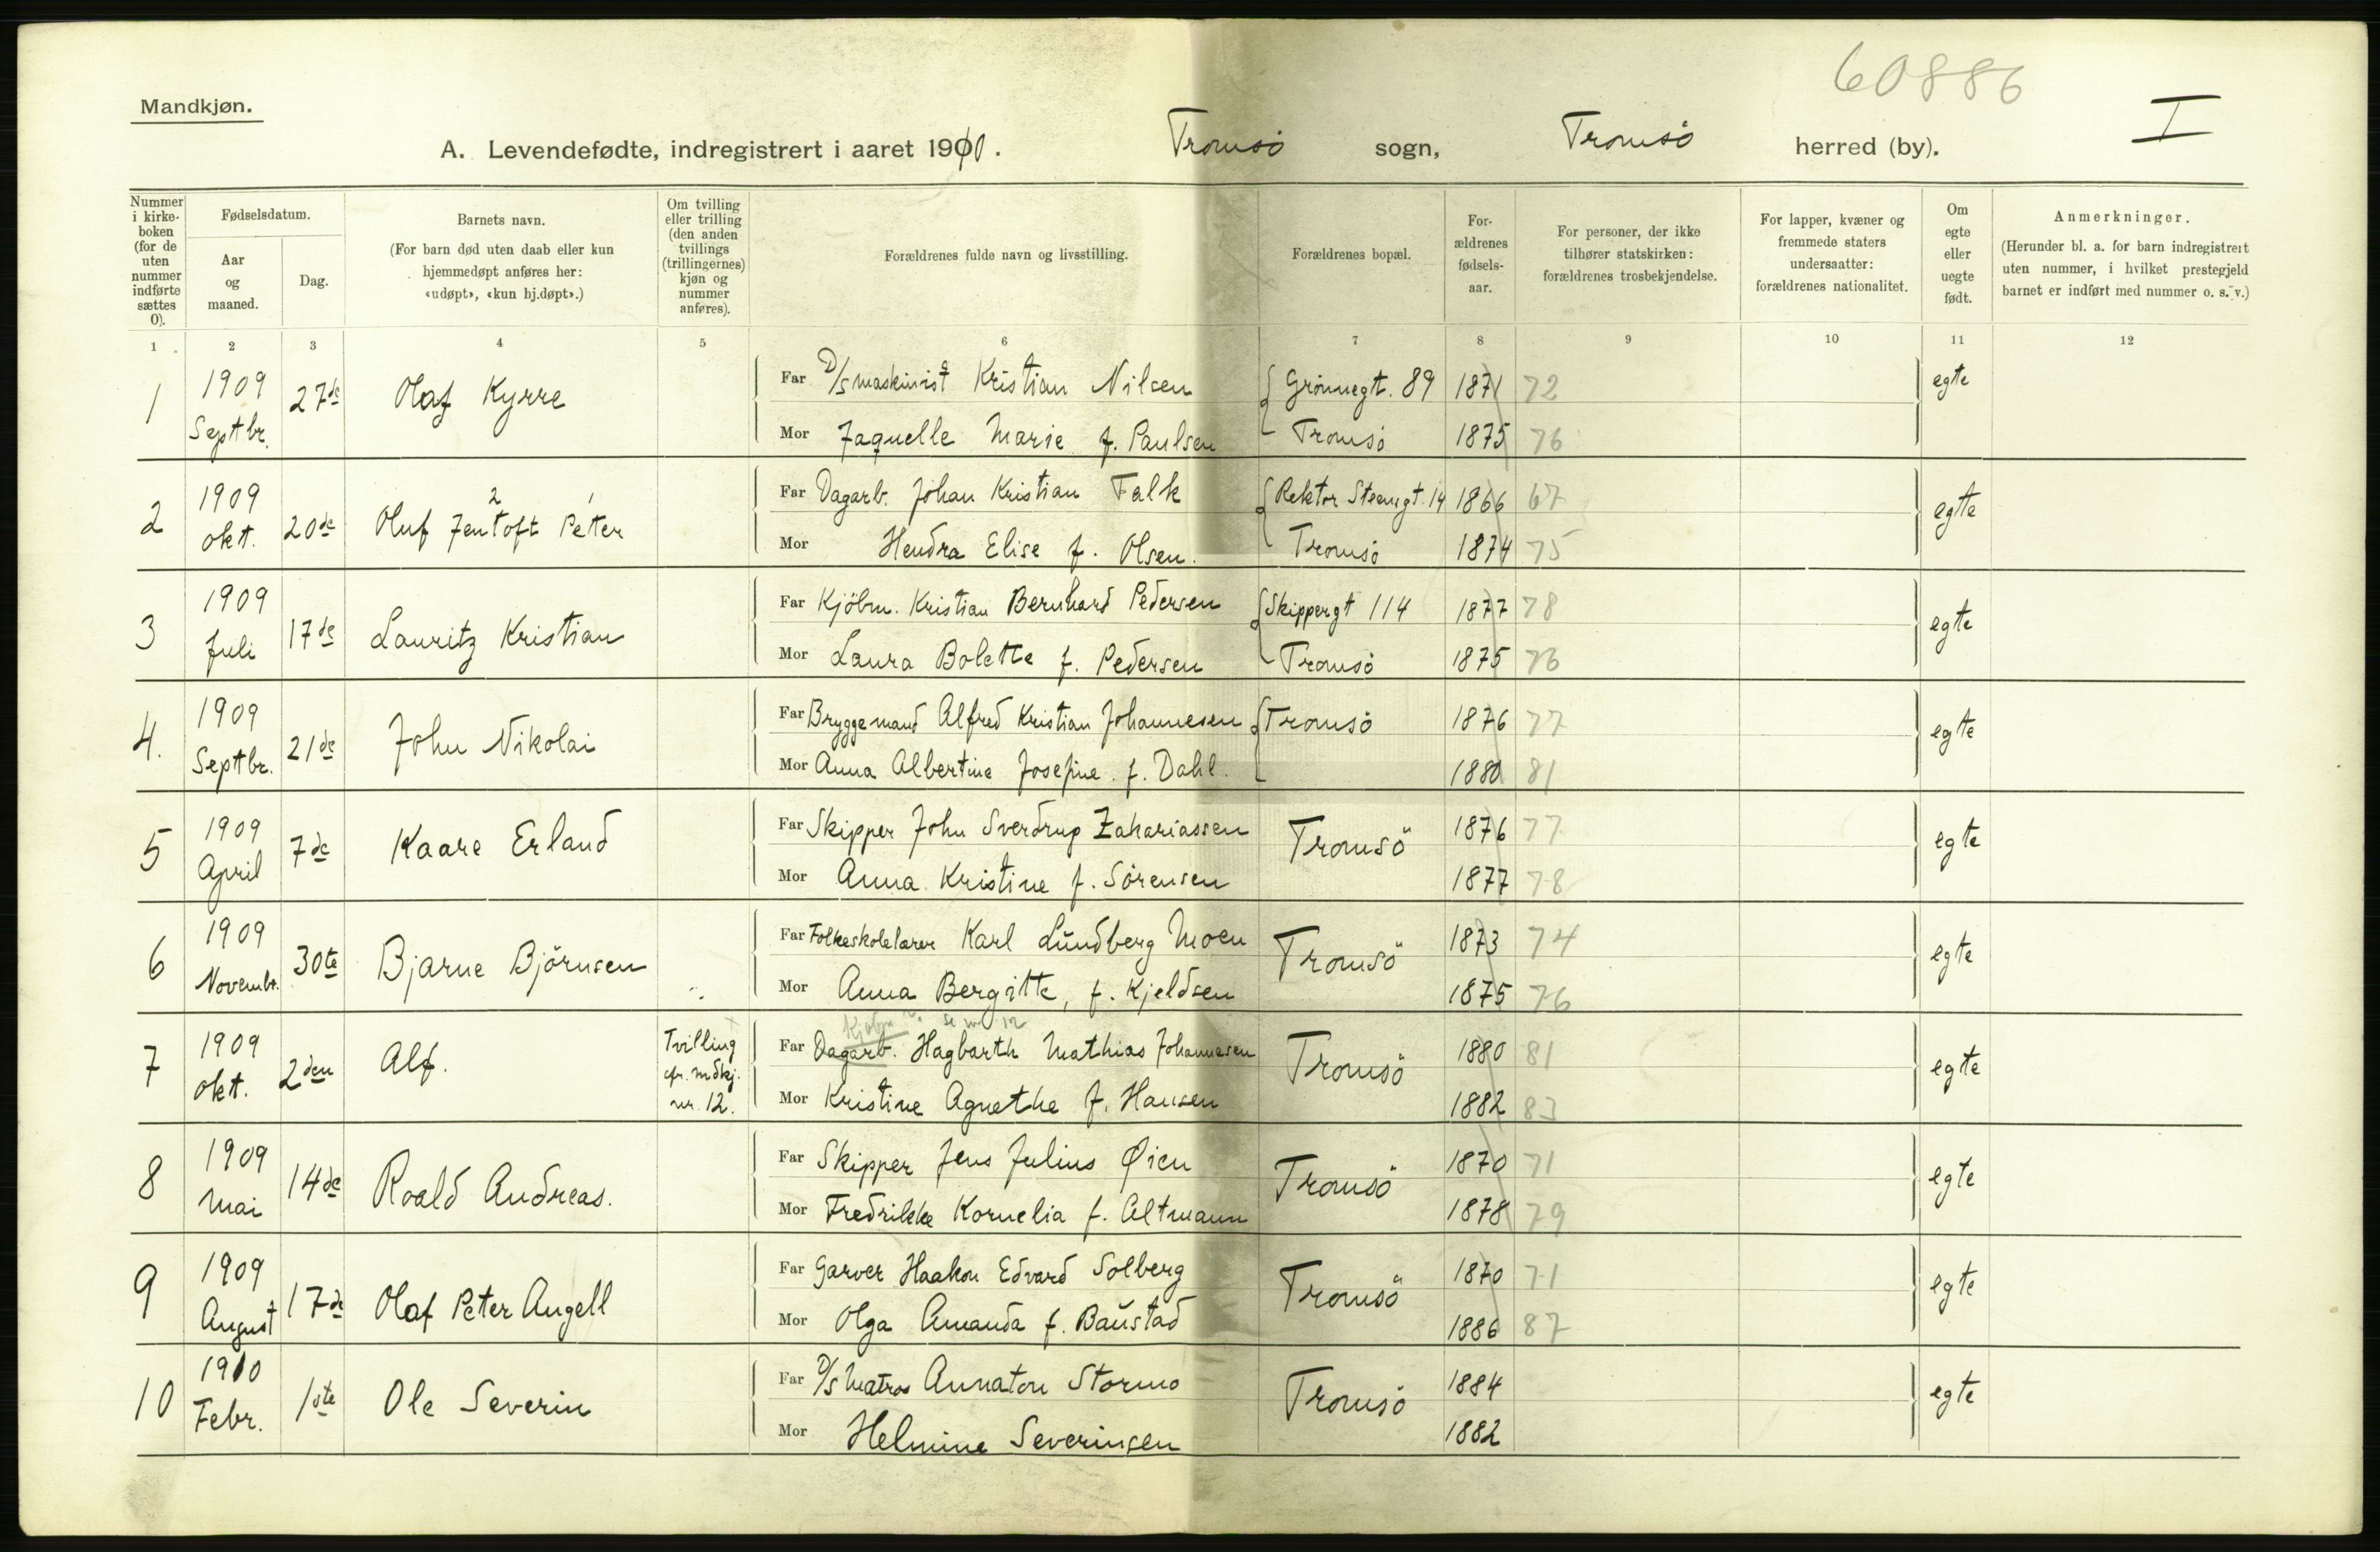 60886
I
Mandkjøn.
A. Levendefødte, indregistrert i aaret 1910. Tromsö sogn, Tromsö herred (by).
Nummer i kirkeboken (for de uten nummer indførte sættes 0).
Fødselsdatum.
Aar og maaned.
Dag.
Barnets navn.
(For barn død uten daab eller kun hjemmedøpt anføres her: «udøpt», «kun hj.døpt».)
Om tvilling eller trilling (den anden tvillings (trillingernes) kjøn og nummer anføres).
Forældrenes fulde navn og livsstilling.
Forældrenes bopæl.
Forældrenes fødselsaar.
For personer, der ikke tilhører statskirken: forældrenes trosbekjendelse.
For lapper, kvæner og fremmede staters undersaatter: forældrenes nationalitet.
Om egte eller uegte født.
Anmerkninger.
(Herunder bl. a. for barn indregistrert uten nummer, i hvilket prestegjeld barnet er indført med nummer o. s. v.)
1 2 3 4 5 6 7 8 9 10 11 12
1 1909 Septbr. 27de Olaf Kyrre
Far D/S maskinist Kristian Nilsen Grönnegt. 89 1871 72 egte
Mor Jaquelle Marie f. Paulsen Tromsö 1875 76
2 1909 Okt. 20de Oluf Jentoft Peter 2 1
Far Dagarb. Johan Kristian Falk Rektor Steensgt. 14 1866 67 egte
Mor Hendra Elise f. Olsen. Tromsö 1874 75
3 1909 Juli 17de Lauritz Kristian
Far Kjöbm. Kristian Bernhard Pedersen Skippergt 114 1877 78 egte
Mor Laura Bolette f. Pedersen Tromsö 1875 76
4. 1909 Septbr. 21de John Nikolai
Far Bryggemand Alfred Kristian Johannesen Tromsö 1876 77 egte
Mor Anna Albertine Josefine f. Dahl. 1880 81
5 1909 April 7de Kaare Erland
Far Skipper John Sverdrup Zakariassen Tromsö 1876 77 egte
Mor Anna Kristine f. Sörensen 1877 78
6 1909 Novembr. 30te Bjarne Björnsen
Far Folkeskolelærer Karl Lundberg Moen Tromsö 1873 74 egte
Mor Anna Bergitte, f. Kjeldsen 1875 76
7 1909 Okt. 2den Alf. Tvilling cfr. mdkj. nr. 12.
Kjøbm. se nr 12
Far Dagarb. Hagbarth Mathias Johannesen Tromsö 1880 81 egte
Mor Kristine Agnethe f. Hansen 1882 83
8 1909 Mai 14de Roald Andreas.
Far Skipper Jens Julius Øien Tromsö 1870 71 egte
Mor Fredrikke Kornelia f. Altmann 1878 79
9 1909 August 17de Olaf Peter Angell
Far Garver Haakon Edvard Solberg Tromsö 1870 71 egte
Mor Olga Amanda f. Baustad 1886 87
10 1910 Febr. 1ste Ole Severin
Far D/S Matros Annaton Stormo Tromsö 1884 egte
Mor Helmine Severinsen 1882